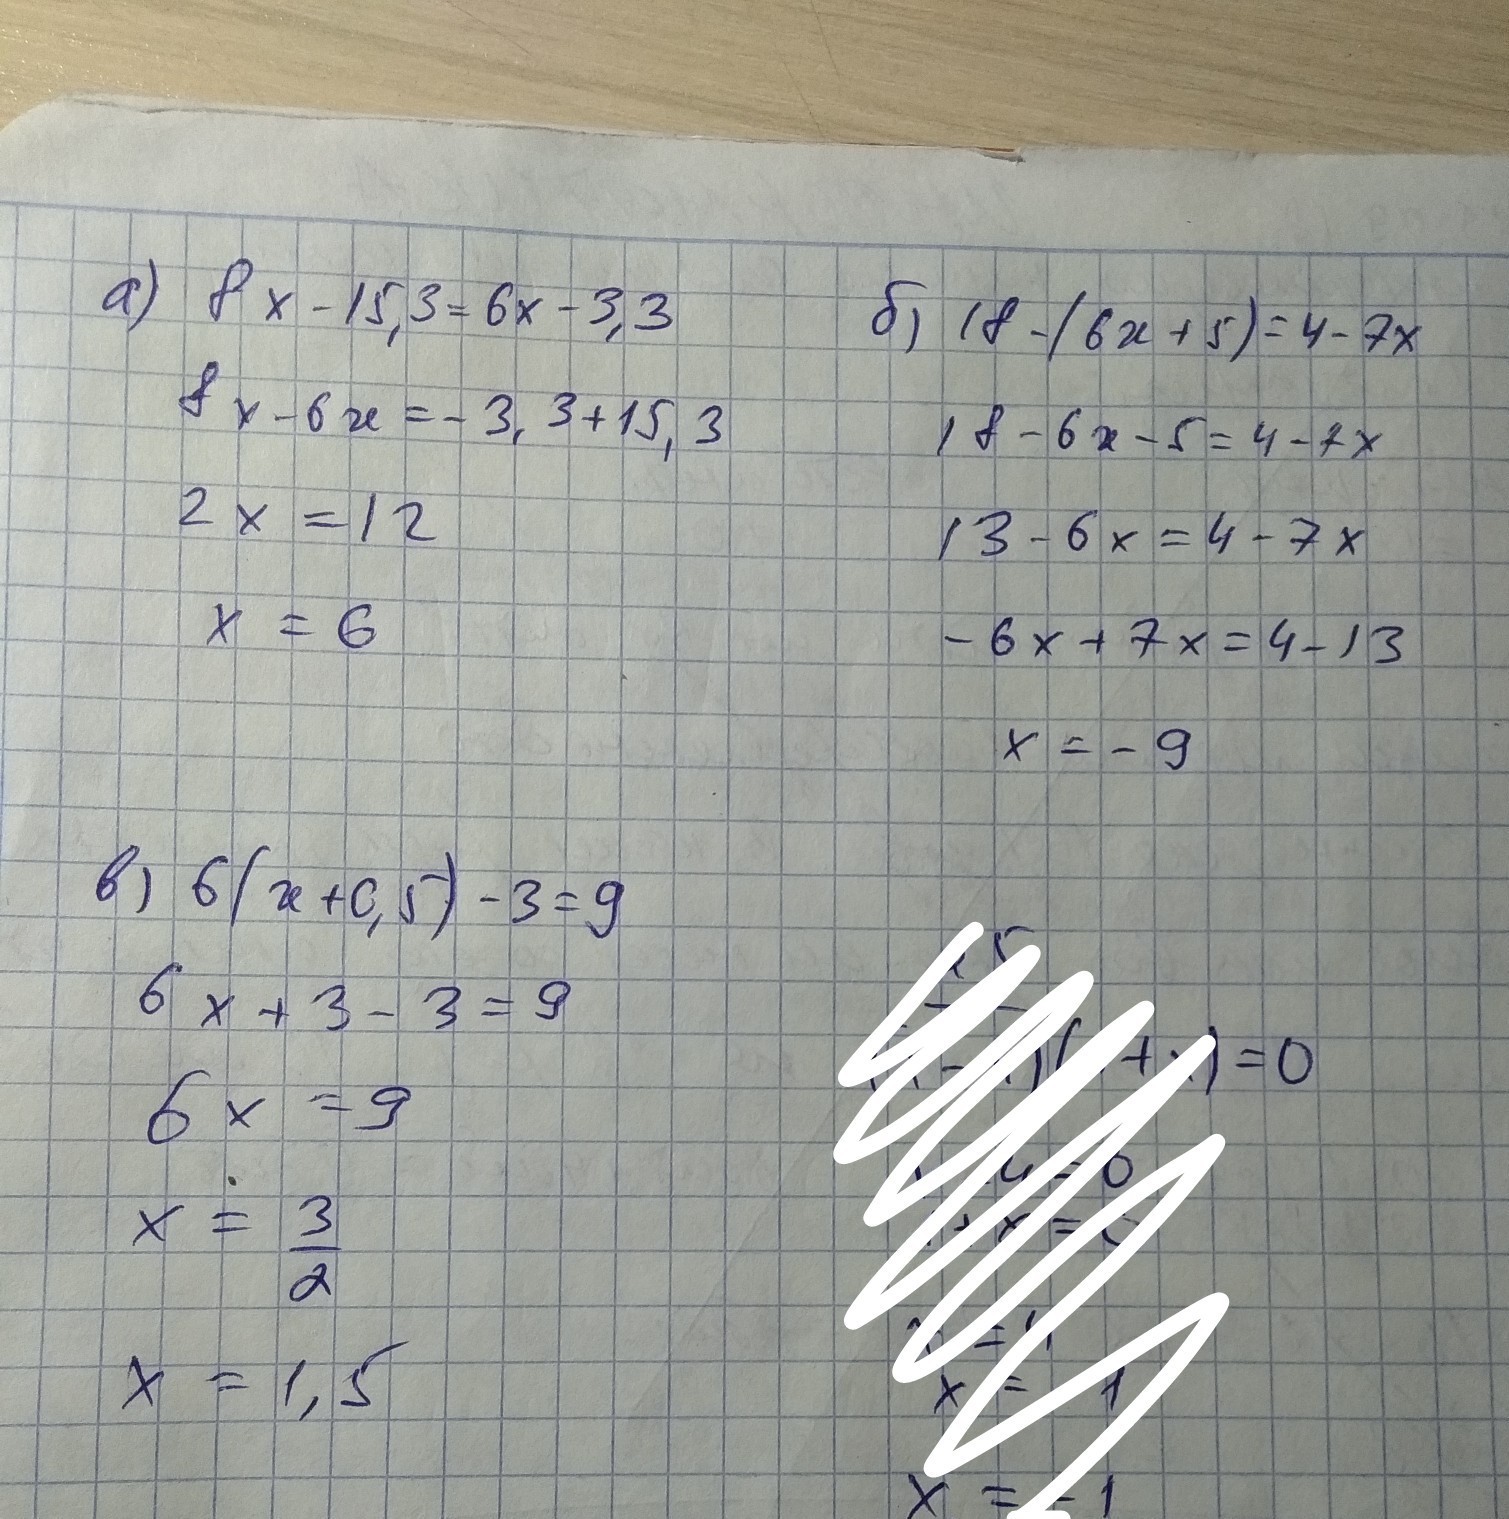 а) 8x-15,3=6x-3,3
8x-6x=-3,3+15,3
2x=12
x=6
б) 18-(6x+5)=4-7x
18-6x-5=4-7x
13-6x=4-7x
-6x+7x=4-13
x=-9
в) 6(x+0,5)-3=9
6x+3-3=9
6x=9
x=3/2
x=1,5
=0
x=-1